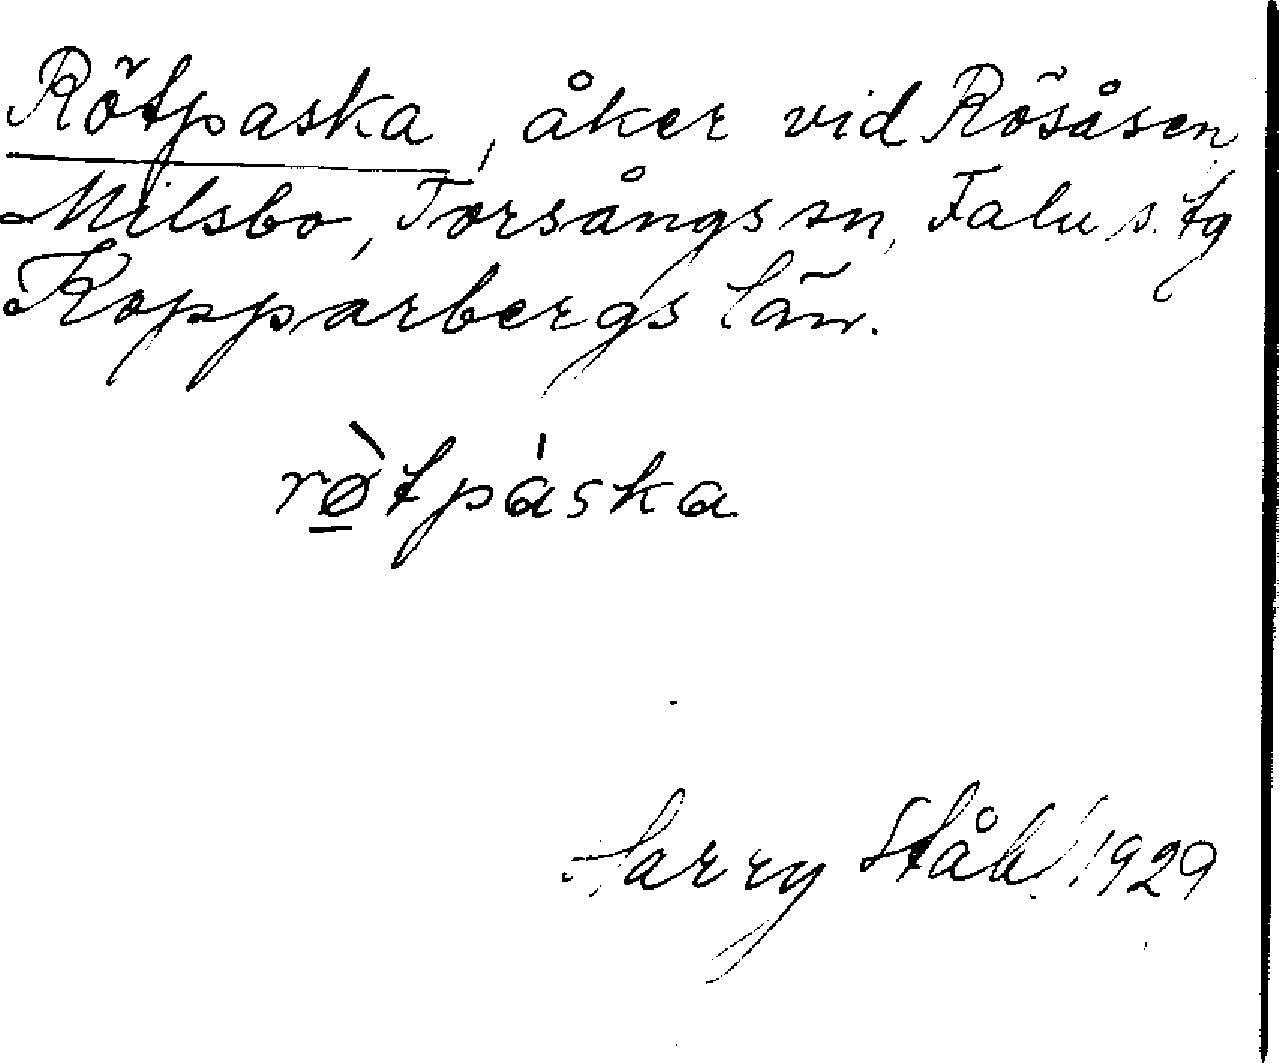 Rötpaska, åker vid Rösåsen
Milsbo, Torsångs sn, Falu s. tg
Kopparbergs län.
rø̲̀tpáska
Harry Ståhl 1929